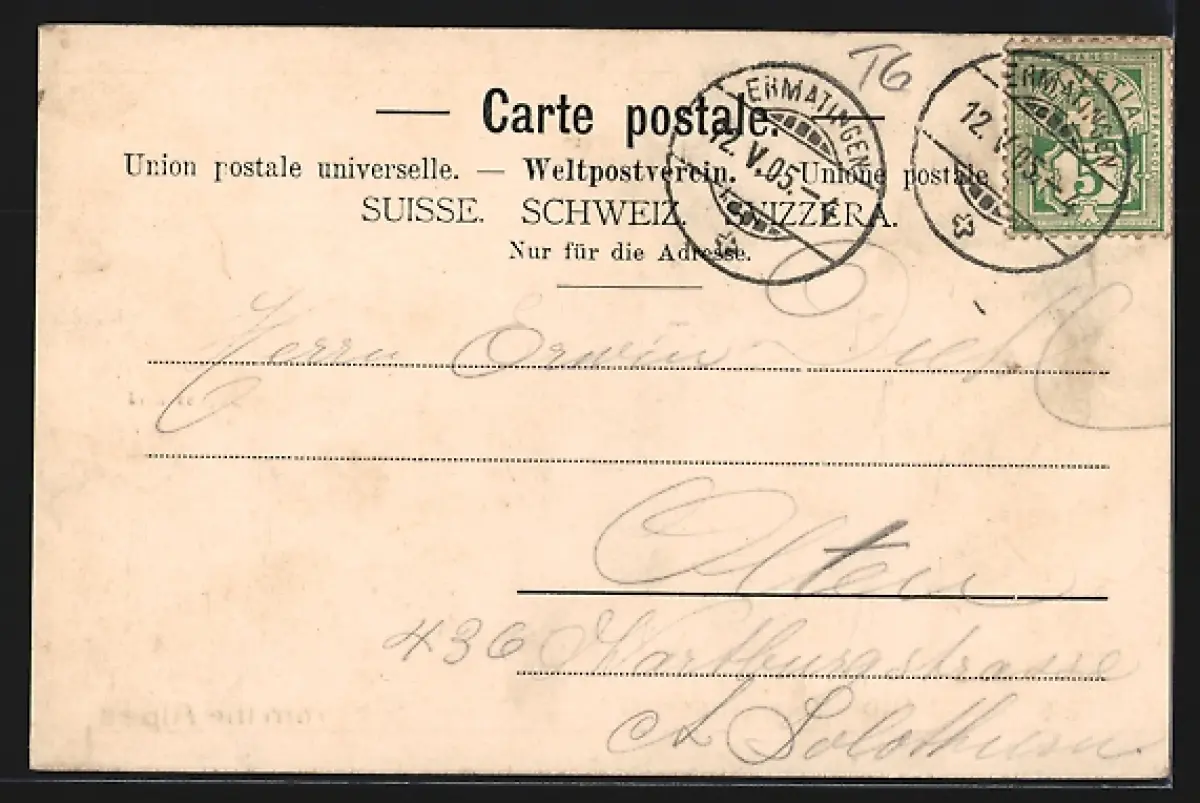 T6
— Carte postale. —
Union postale universelle. — Weltpostverein. — Unione postale
SUISSE. SCHWEIZ. SVIZZERA.
Nur für die Adresse.
ERMATINGEN
12.V.05.-4
ERMATINGEN
12.V.05.-4
HELVETIA
FRANCO
5
Herrn Erwin
Olten
436 Wartburgstrasse
Ct. Solothurn